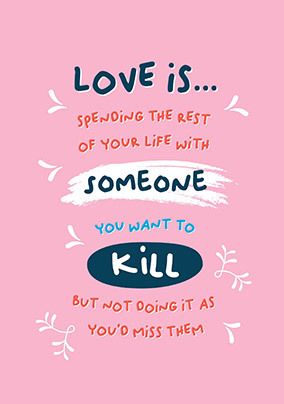 LOVE is...
SPENDING THE REST
OF YOUR LIFE WiTH
SOMEONE
YOU WANT TO
KiLL
BUT NOT DOING iT AS
YOU'D MiSS THEM